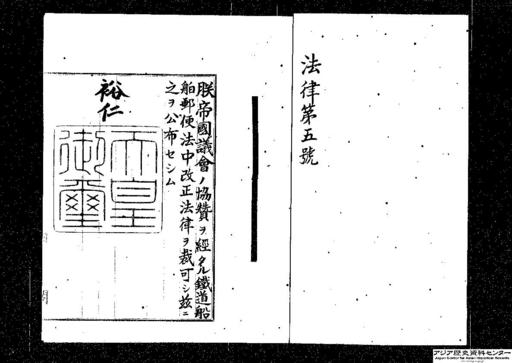 法律第五號
朕帝國議會ノ協贊ヲ經タル鐵道船
舶郵便法中改正法律ヲ裁可シ茲ニ
之ヲ公布セシム
裕仁
天皇
御璽
アジア歴史資料センター
Japan Center for Asian Historical Records